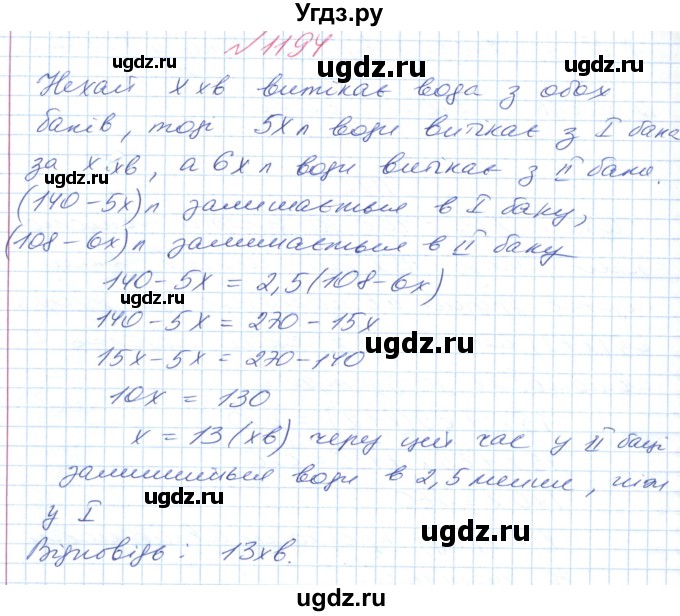 Угдз.ру
№1194
Нехай x хв витікає вода з обох
баків, тоді 5x л води витікає з I бака
за x хв, а 6x л води витікає з II бака.
(140-5x)л залишається в I баку,
(108-6x)л залишається в II баку
140-5x = 2,5(108-6x)
140-5x = 270-15x
15x-5x = 270-140
10x = 130
x = 13 (хв) через цей час у II баці
залишиться води в 2,5 менше, ніж
у I
Відповідь: 13хв.
ugdz.ru
ugdz.ru
ugdz.ru
ugdz.ru
ugdz.ru
ugdz.ru
ugdz.ru
ugdz.ru
ugdz.ru
ugdz.ru